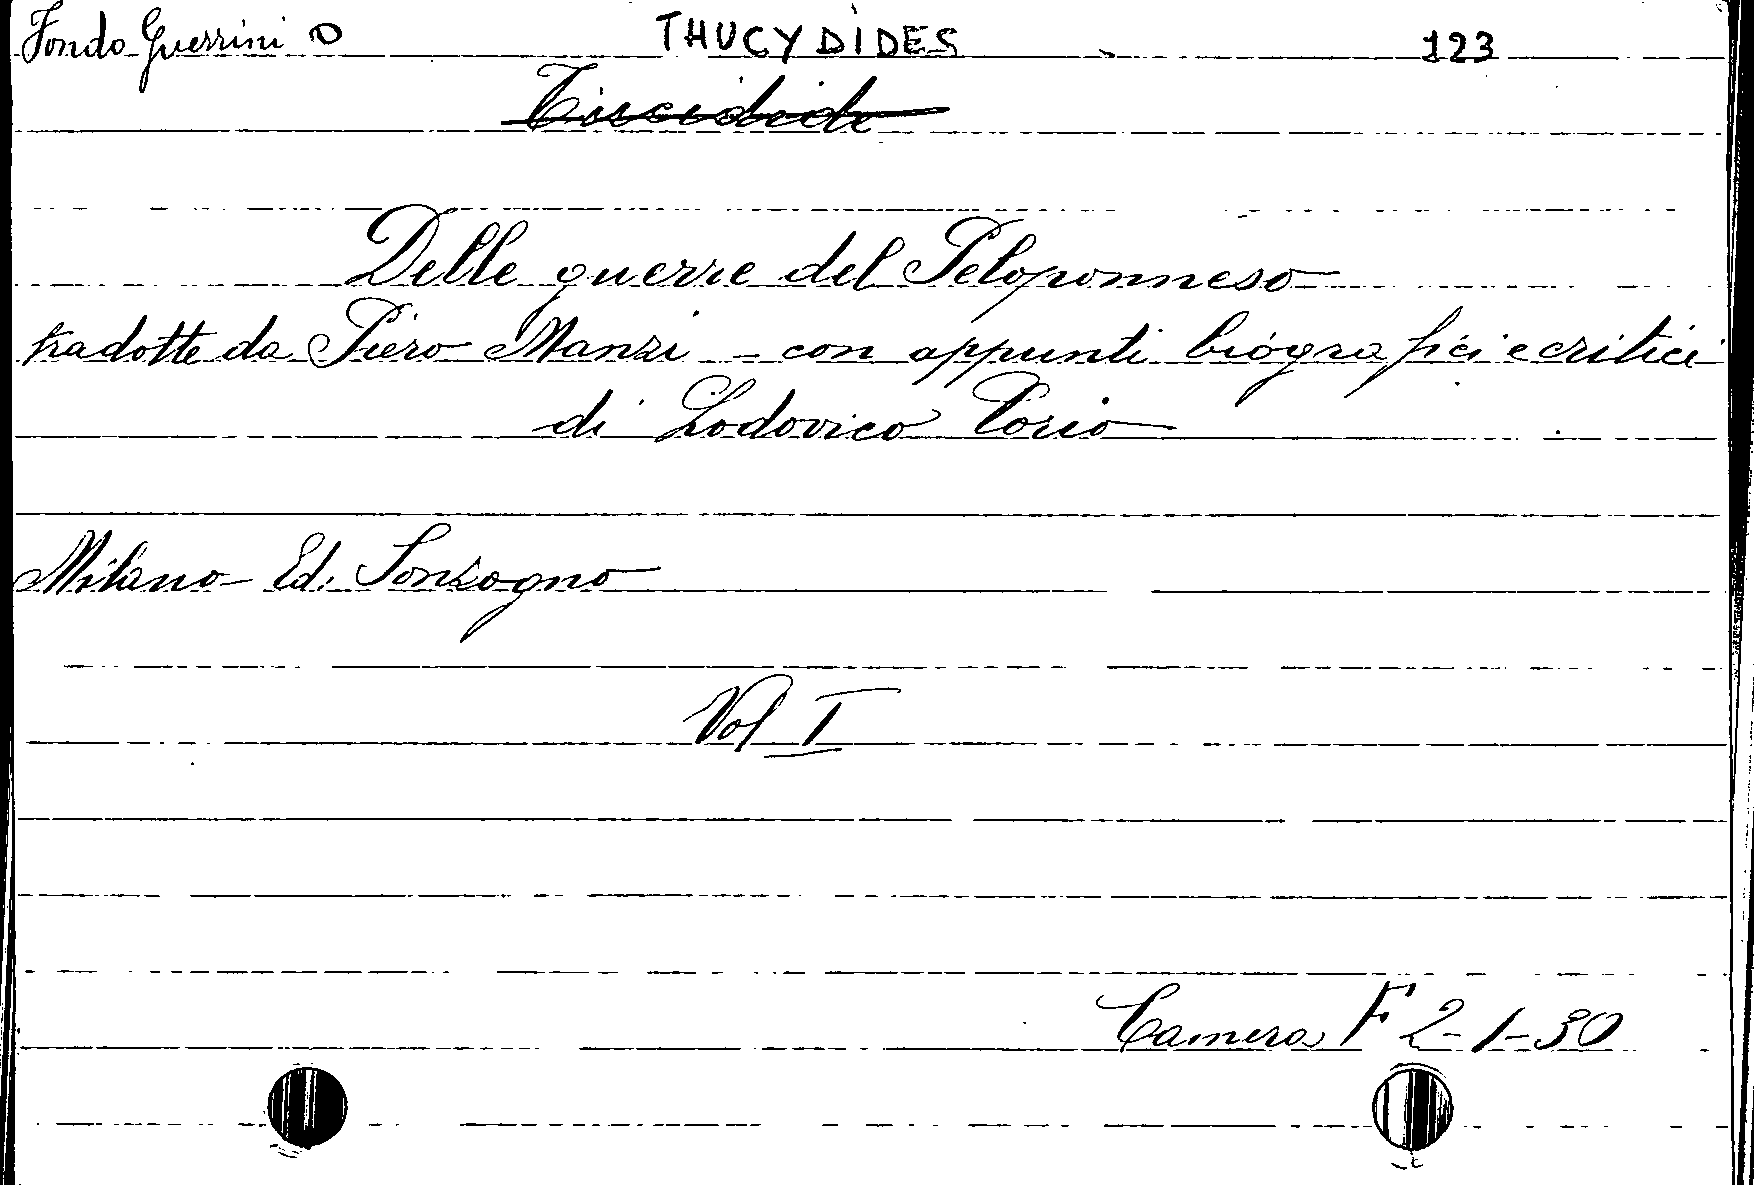 Fondo Guerrini O THUCYDIDES 123
Tucidide
Delle guerre del Peloponneso
tradotte da Piero Manzi - con appunti biografici e critici
di Lodovico Corio
Milano - Ed. Sonzogno
Vol I
Camera F 2-1-30